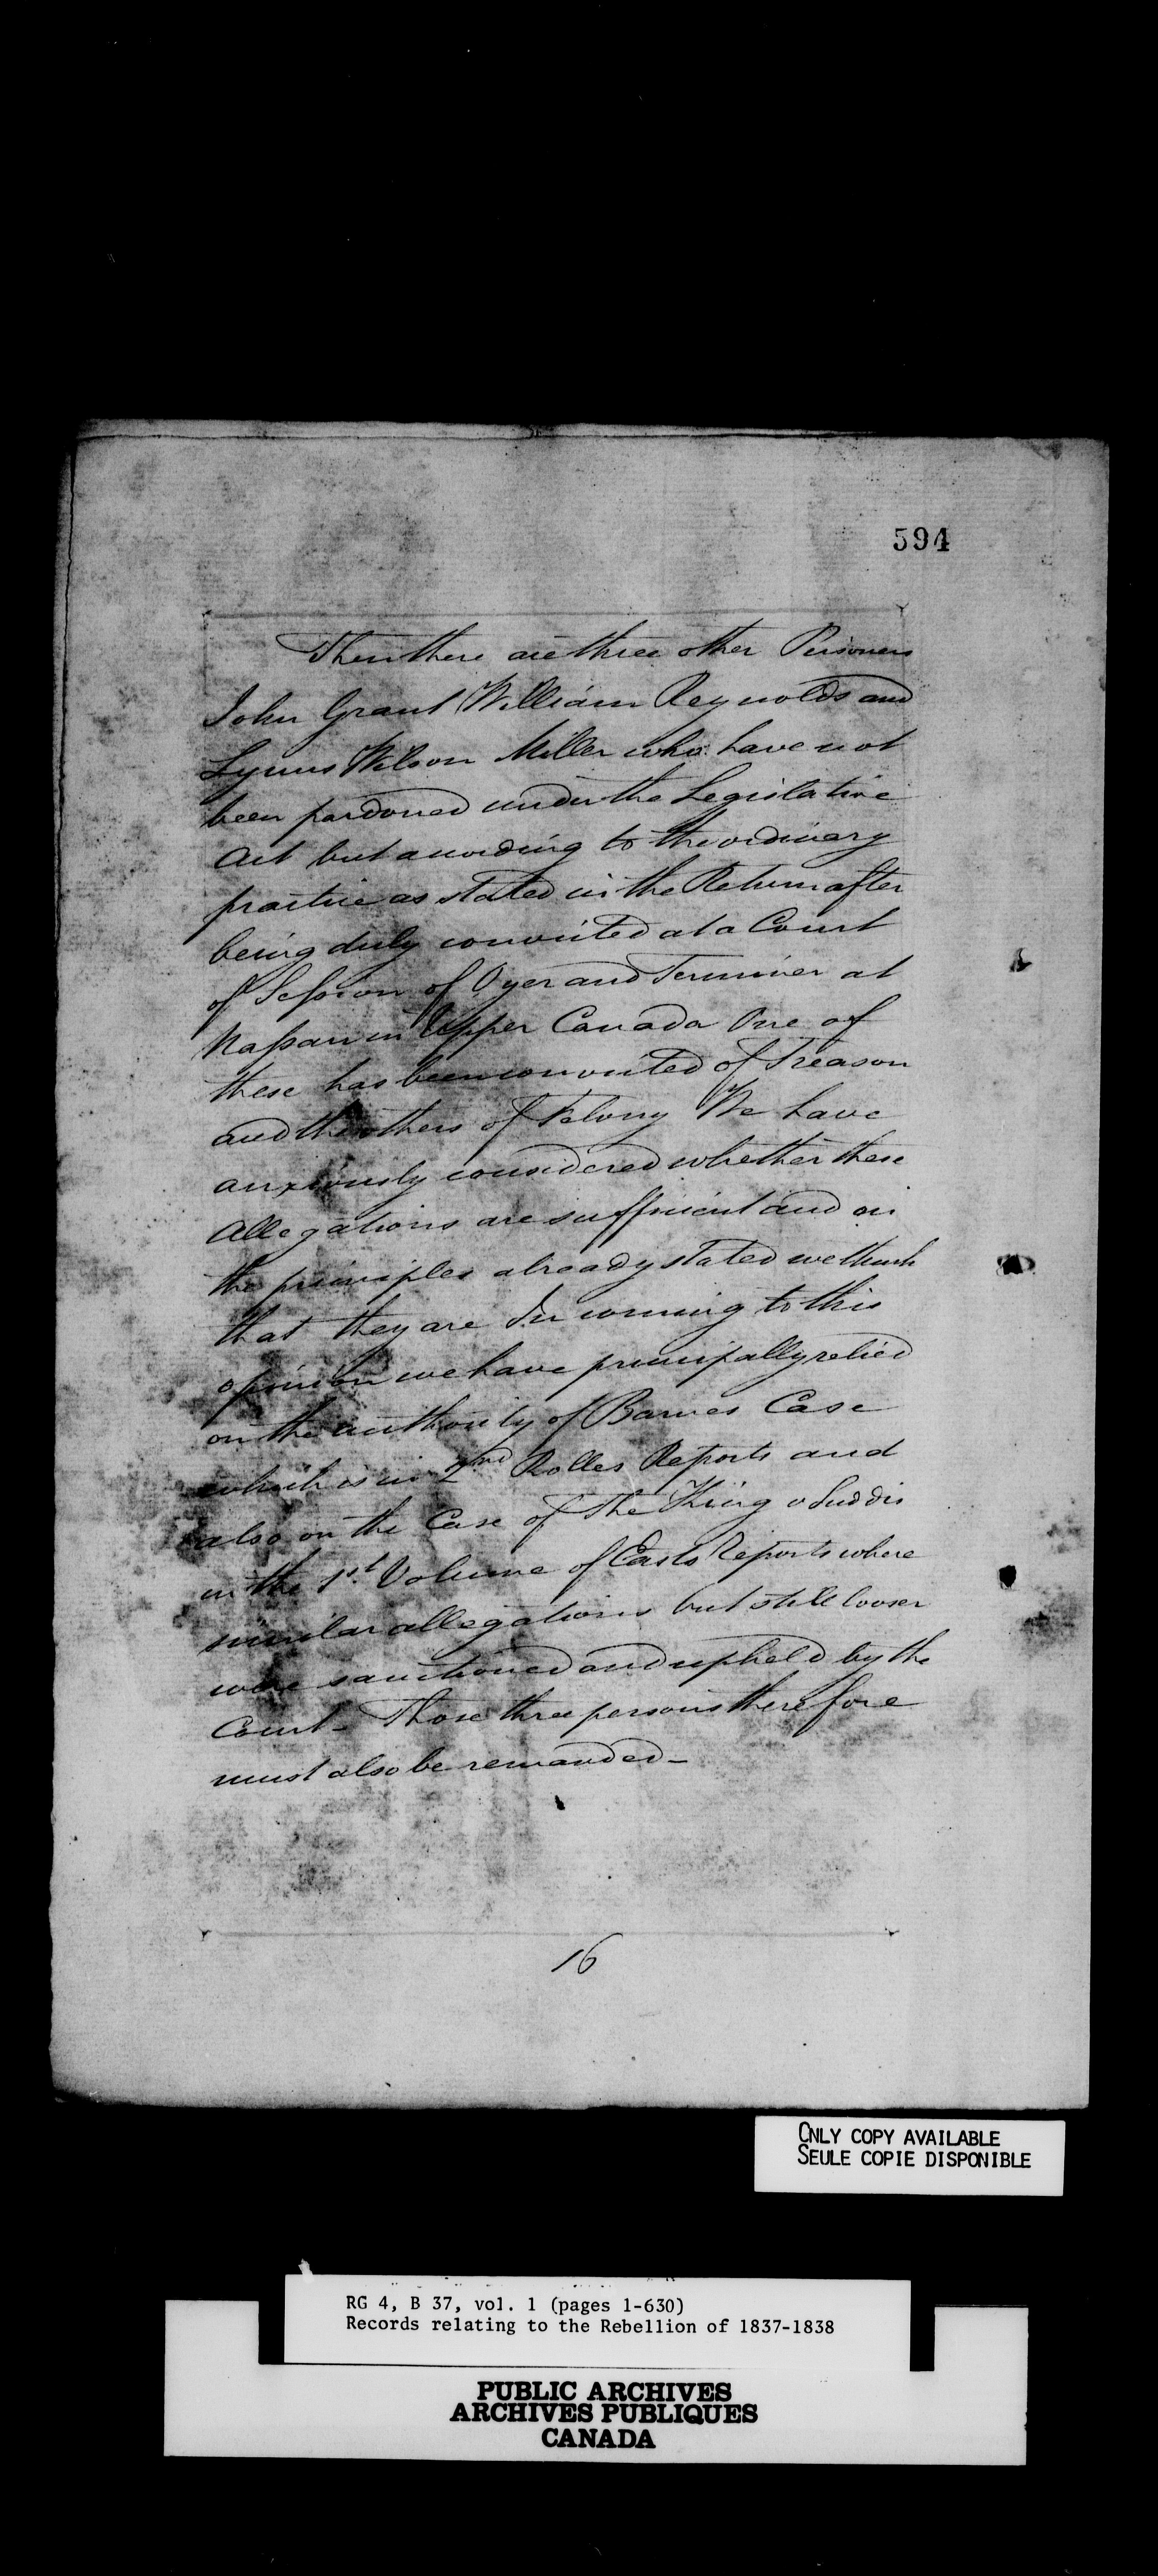 594
Then there are three other Prisoners
John Grant William Reynolds and
Lynus Wilson Miller who have not
been pardoned under the Legislative
Act but according to the ordinary
practice as stated in the Return after
being duly convicted at a Court
of Session of Oyer and Terminer at
Nassau in Upper Canada One of
these has been convicted of Treason
and the others of Felony We have
anxiously considered whether these
Allegations are sufficient and on
the principles already stated we think
that they are In coming to this
opinion we have principally relied
on the authority of Barnes Case
which is in 2nd Rolles Reports and
also on the Case of The King v Suddis
in the 1st Volume of Easts Reports where
similar allegations but still looser
were sanctioned and upheld by the
Court - Those three persons therefore
must also be remanded -
16
ONLY COPY AVAILABLE
SEULE COPIE DISPONIBLE
RG 4, B 37, vol. 1 (pages 1-630)
Records relating to the Rebellion of 1837-1838
PUBLIC ARCHIVES
ARCHIVES PUBLIQUES
CANADA